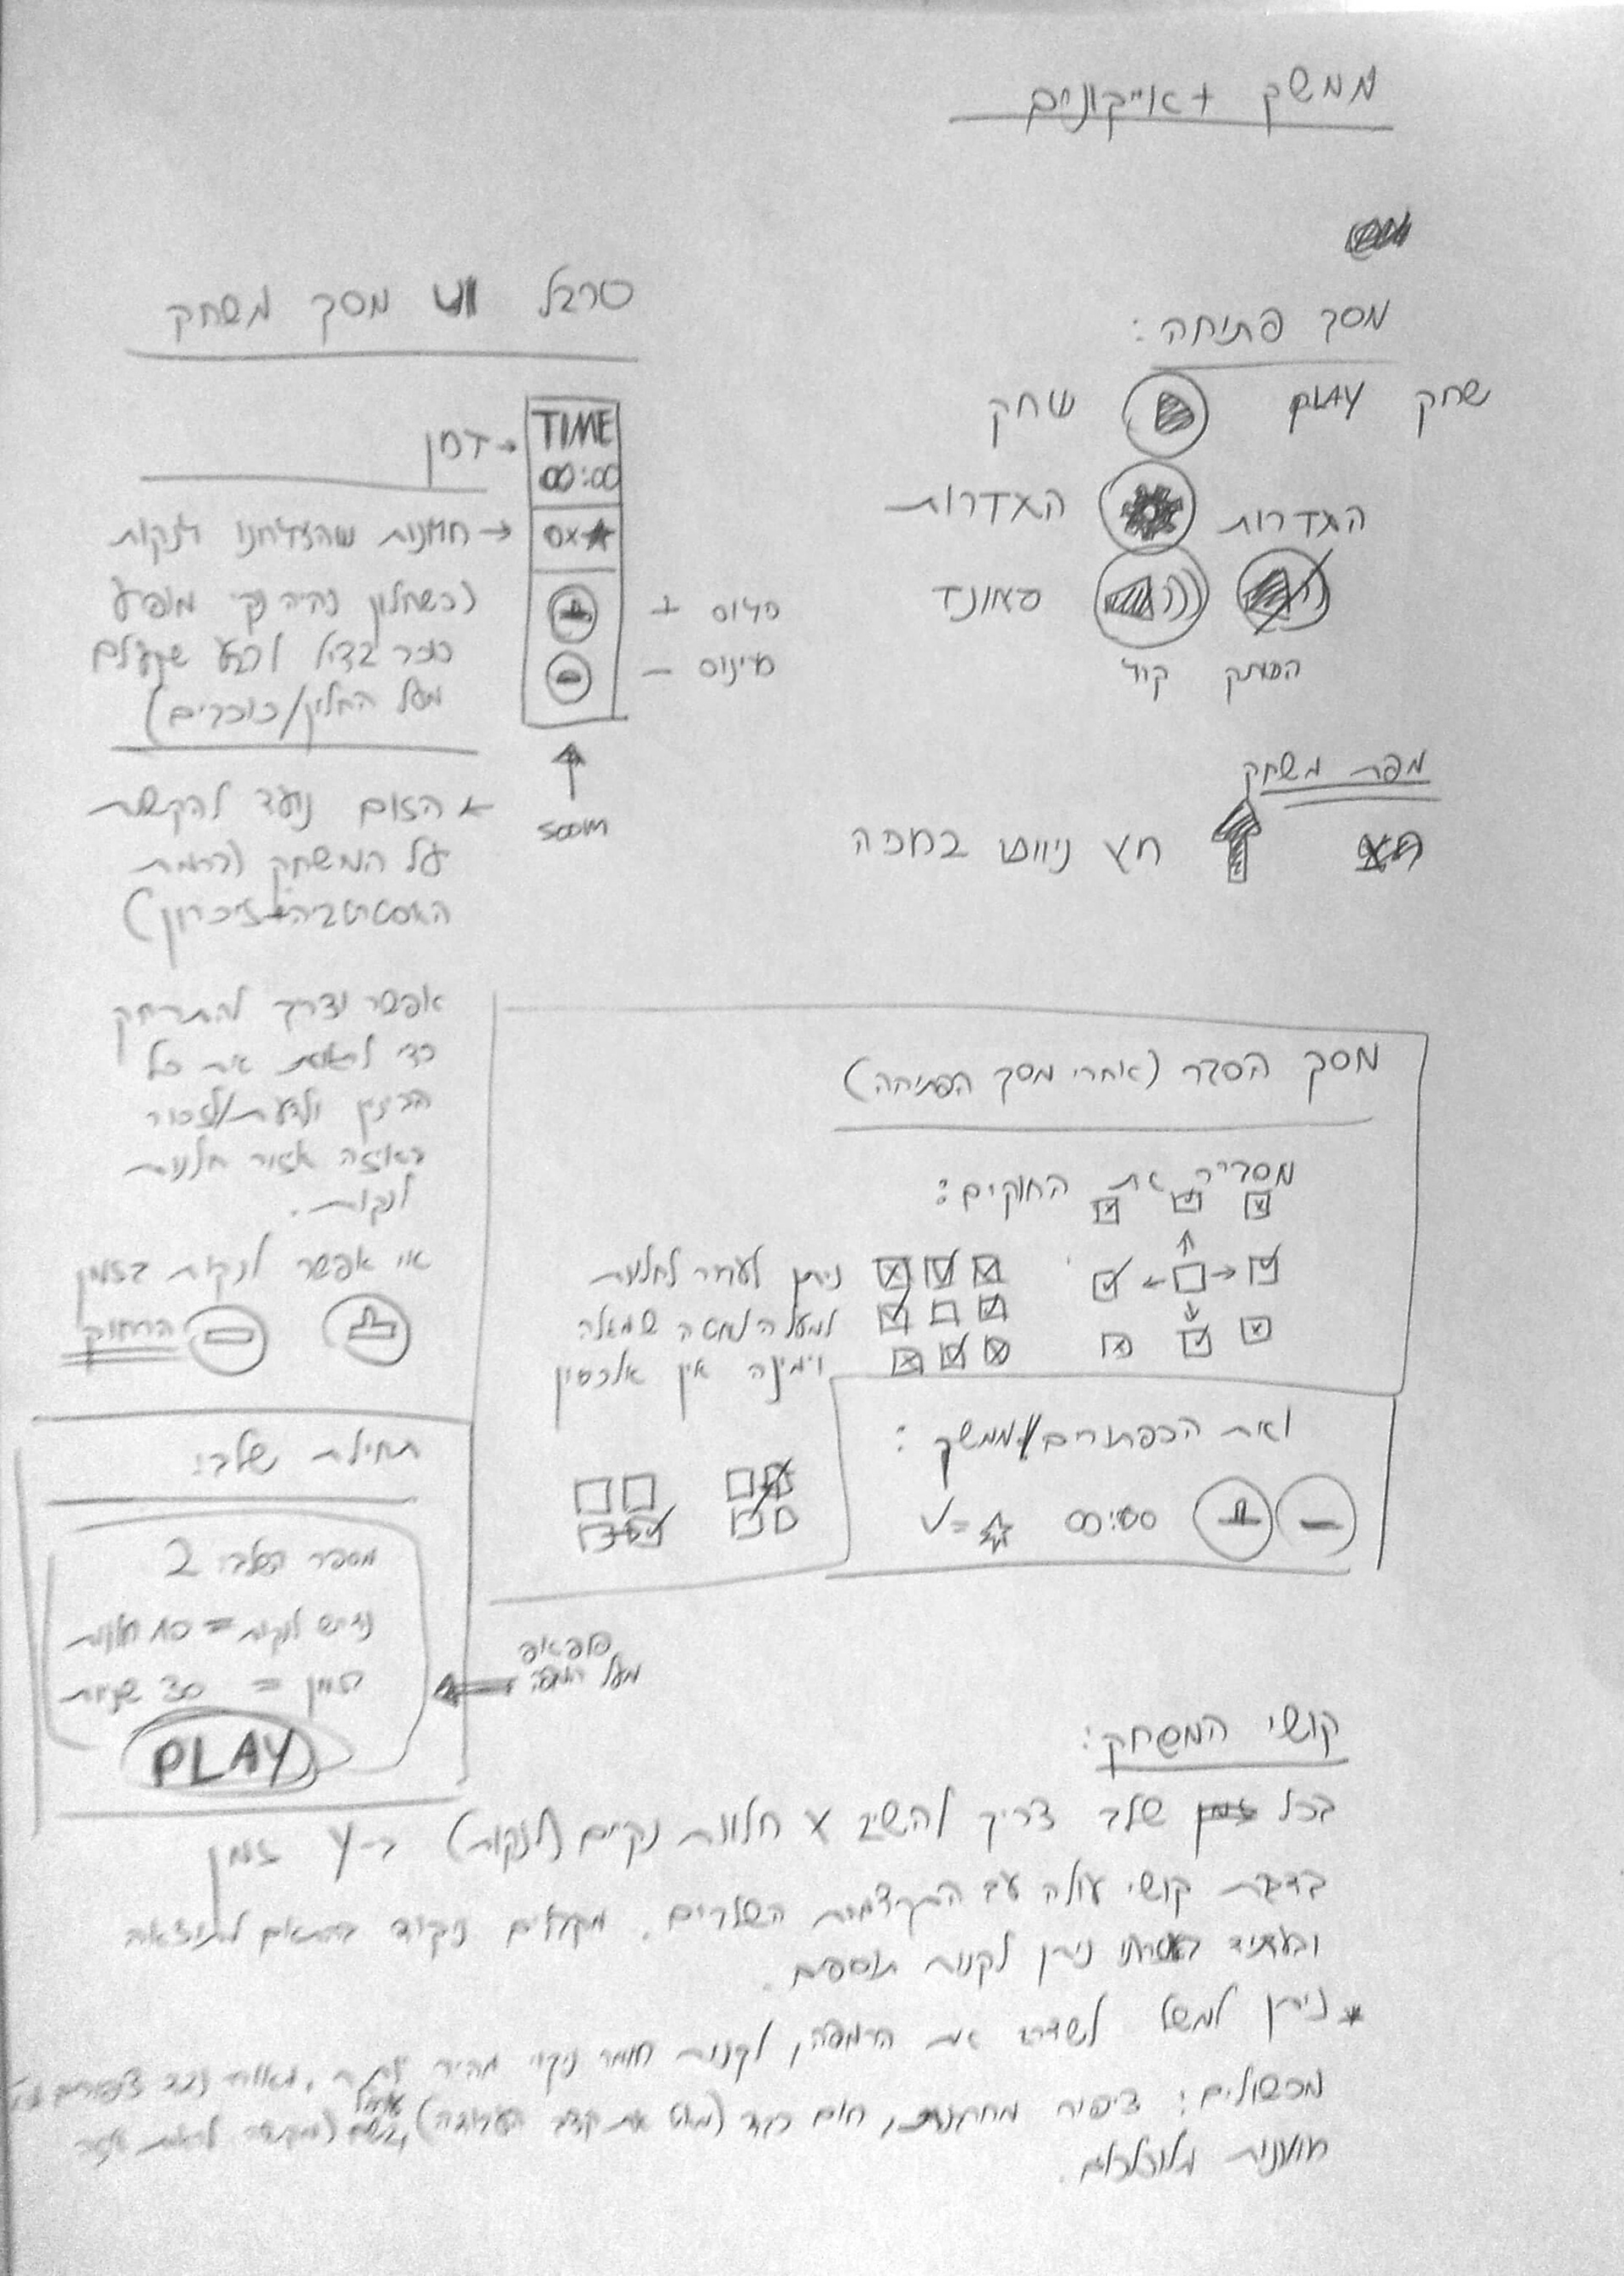 ממשק + אייקונים
מסך פתיחה:
שחק PLAY שחק
הגדרות הגדרות
סאונד
הפסק קול
מפת משחק
חץ ניווט במפה
סרגל UI מסך משחק
TIME
00:00
זמן
0x★
חלונות שהצלחנו לנקות
(כשחלון נהיה נקי מופיע
כוכב גדול לרגע שנעלם
מעל החלון/כוכבים)
פלוס +
מינוס -
zoom
הזום נועד להקשות
על המשחק (ברמת
האסטרטגיה+זיכרון)
אפשר וצריך להתרחק
כדי לראות את כל
הבניין ולדעת/לזכור
באיזה אזור חלונות
לנקות.
אי אפשר לנקות בזמן
הרחוק
מסך הסבר (אחרי מסך הפתיחה)
מסביר את החוקים:
ניתן לעבור לחלונות
למעלה למטה שמאלה
וימינה אין אלכסון
ואת הכפתורים/ממשק:
V=☆ 00:00 + -
תחילת שלב:
מספר השלב: 2
יש לנקות = 10 חלונות
זמן = 30 שניות
PLAY
פופאפ
מעל המפה
קושי המשחק:
בכל שלב צריך להשיג X חלונות נקיים (לנקות) ב-Y זמן
בדרגת קושי עולה עם התקדמות השלבים. מקבלים ניקוד בהתאם לתוצאה
ובעתיד ניתן לקנות תוספים.
* ניתן למשל לשדרג את הרמפה, לקנות חומר ניקוי מהיר יותר, נגד ציפורים
מכשולים: ציפור מחרבנת, חום כבד (מאט את קצב העבודה), גשם (מקשה לראות
חלונות מלוכלכים.